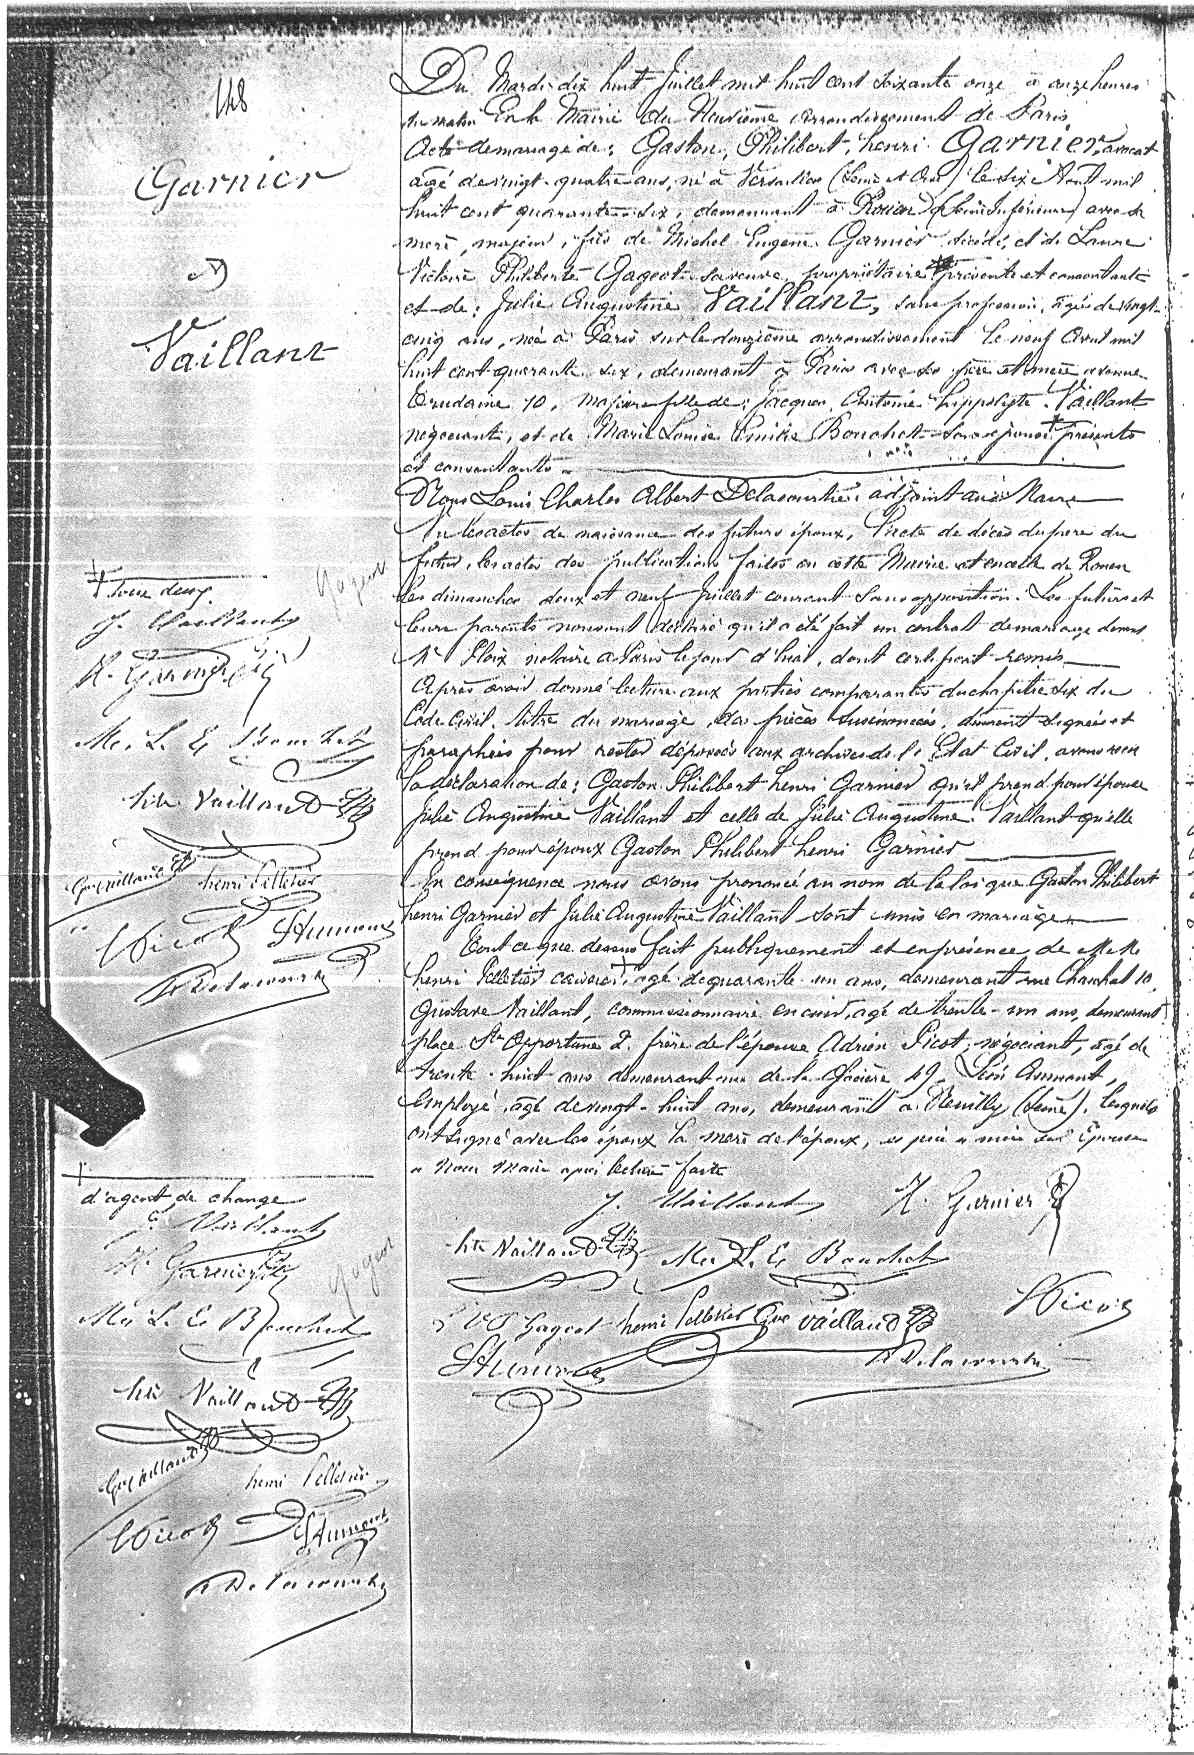 148
Garnier
et
Vaillant
Du Mardi dix huit Juillet mil huit cent soixante onze à onze heures
du matin En la Mairie du Neuvième arrondissement de Paris
Acte de mariage de : Gaston, Philibert, henri Garnier, avocat
agé de vingt-quatre ans, né à Versailles (Seine et Oise) le six Août mil
huit cent quarante-six, demeurant à Rouen (Seine Inférieure) avec sa
mère, majeur, fils de Michel Eugène Garnier décédé, et de Laure
Victoire Philiberte Gageot sa veuve, propriétaire présente et consentante
et de : Julie Augustine Vaillant, sans profession, agée de vingt-
cinq ans, née à Paris sur le douzième arrondissement le neuf Avril mil
huit cent quarante six, demeurant à Paris avec ses père et mère avenue
Trudaine 10, majeure fille de : Jacques Antoine hippolyte Vaillant
négociant, et de Marie Louise Emilie Bouchet son épouse présents
et consentants
Nous Louis Charles Albert Delacourtie adjoint au Maire
Vu les actes de naissance des futurs époux, l'acte de décès du père du
futur, les actes des publications faites en cette Mairie et en celle de Rouen
les dimanches deux et neuf Juillet courant sans opposition. Les futurs et
leurs parents nous ont déclaré qu'il a été fait un contrat de mariage devant
Me Ploix notaire à Paris le jour d'hui, dont certificat remis
Après avoir donné lecture aux parties comparantes du chapitre six du
Code Civil, titre du mariage, des pièces susénoncées, dûment signées et
paraphées pour rester déposées aux archives de l'Etat Civil, avons reçu
la déclaration de : Gaston Philibert henri Garnier qu'il prend pour épouse
Julie Augustine Vaillant et celle de Julie Augustine Vaillant qu'elle
prend pour époux Gaston Philibert henri Garnier
En conséquence nous avons prononcé au nom de la loi que Gaston Philibert
henri Garnier et Julie Augustine Vaillant sont unis en mariage
Tout ce que dessus fait publiquement et en présence de MM.
henri Pelletier caissier, agé de quarante-un ans, demeurant rue Chauchat 10,
Gustave Vaillant, commissionnaire en cuirs, agé de trente-un ans, demeurant
place Ste Opportune 2. frère de l'épouse, Adrien Picot, négociant, agé de
trente-huit ans demeurant rue de la Glacière 49. Léon Aumont,
employé, agé de vingt-huit ans, demeurant à Neuilly (Seine). lesquels
ont signé avec les époux la mère de l'époux, les père et mère de l'épouse
et Nous Maire après lecture faite
J. Vaillant
H. Garnier
hte Vaillant
Me L. E. Bouchet
Picot
Gageot
henri Pelletier
Gve Vaillant
Aumont
A Delacourtie
tous deux
J. Vaillant
H. Garnier
Me L. E. Bouchet
hte Vaillant
Gve Vaillant
henri Pelletier
Picot
Aumont
A Delacourtie
d'agent de change
J. Vaillant
H. Garnier
Me L. E. Bouchet
hte Vaillant
Gve Vaillant
henri Pelletier
Picot
Aumont
A Delacourtie